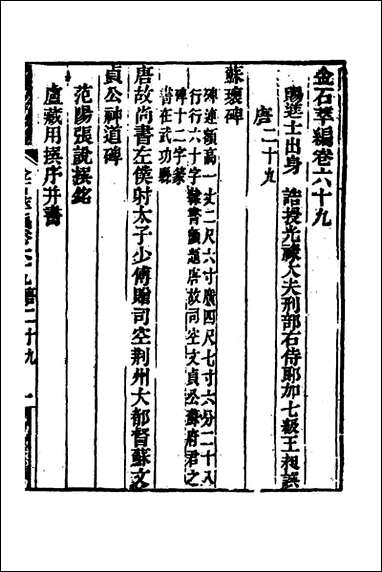 金石萃編卷六十九
賜進士出身　誥授光祿大夫刑部右侍郎加七級王昶譔
唐二十九
蘇瓌碑
碑連額高一丈二尺六寸廣四尺七寸六分二十八
行行六十字隸書額題唐故司空文貞公蘇府君之
碑十二字篆
書在武功縣
唐故尚書左僕射太子少傅贈司空荆州大都督蘇文
貞公神道碑
范陽張說撰銘
盧藏用撰序并書
金石萃編卷六十九唐二十九　一